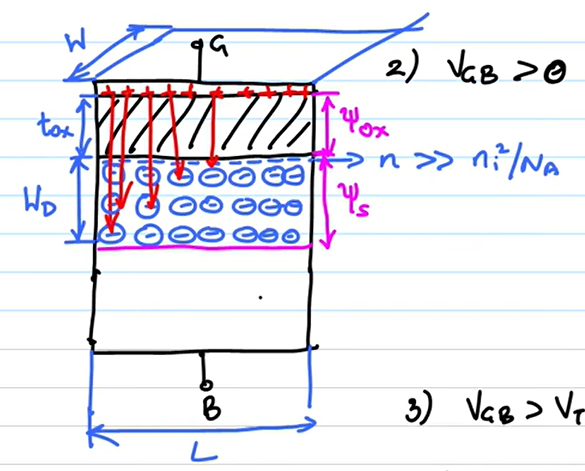 W
G
2) V_GB > 0
t_ox
ψ_ox
n >> n_i²/N_A
W_D
ψ_s
B
3) V_GB > V_T
L